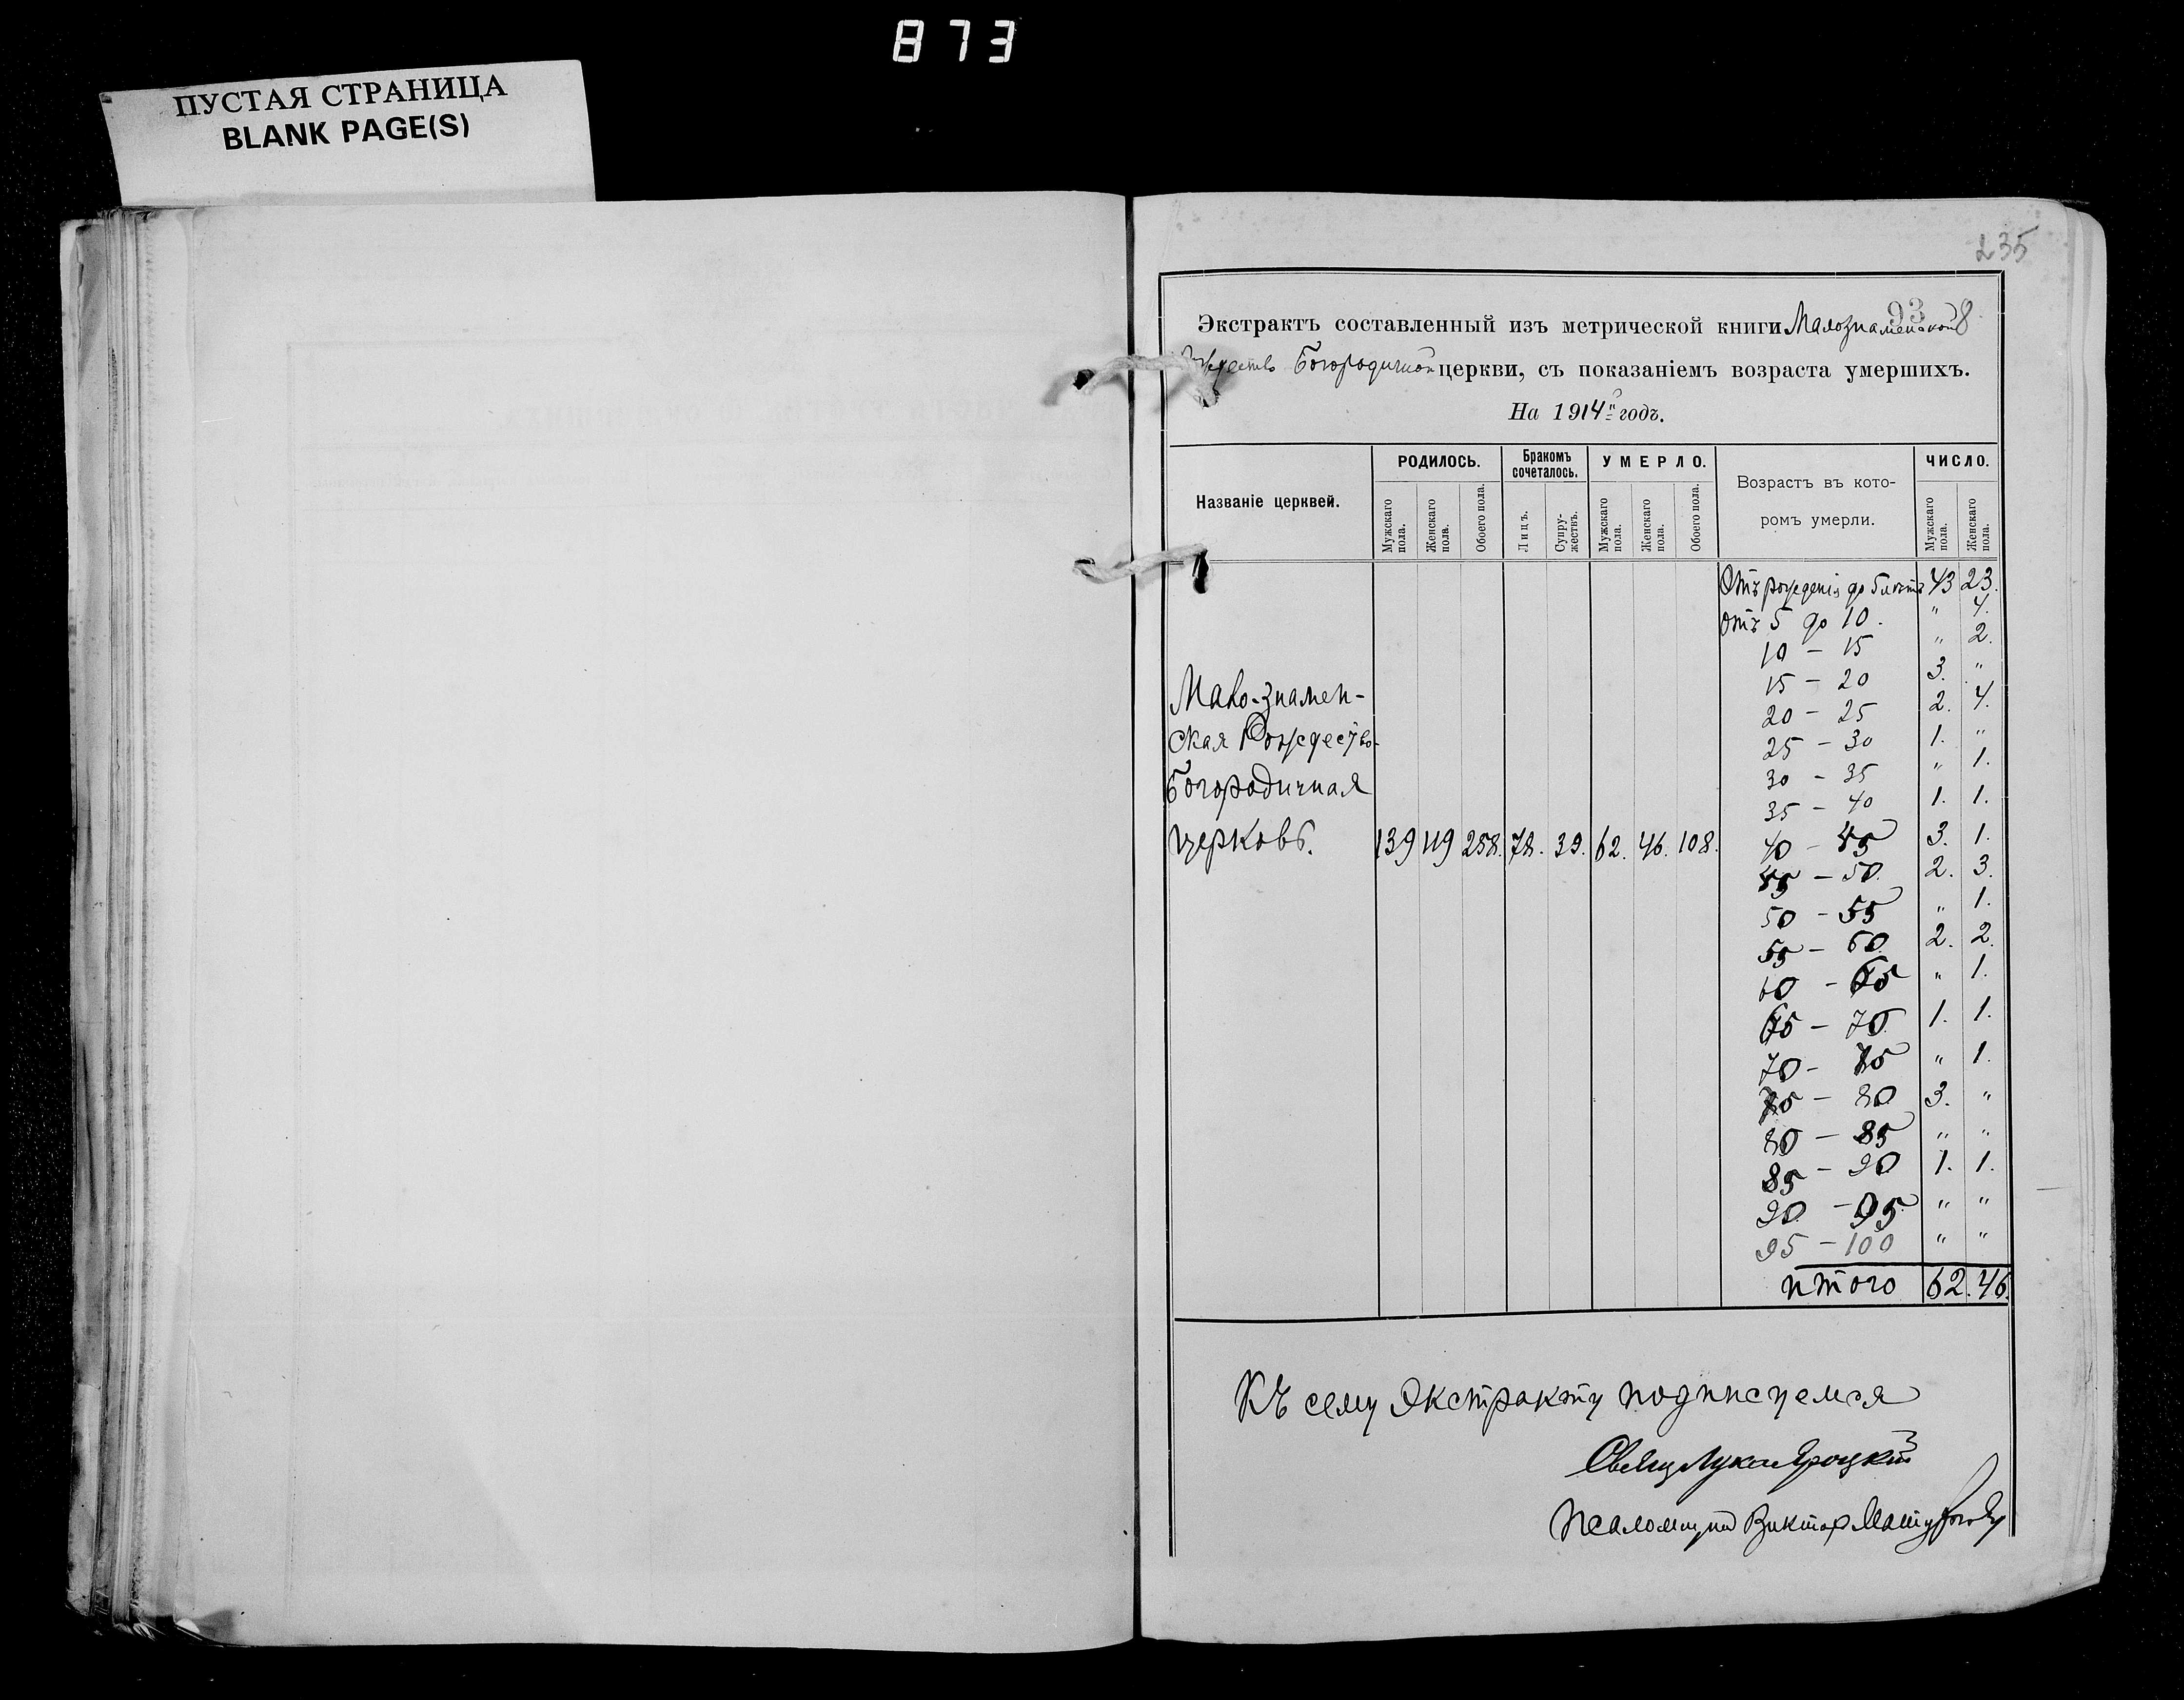 873
ПУСТАЯ СТРАНИЦА
BLANK PAGE(S)
235
93
Экстрактъ составленный изъ метрической книги Малознаменской
Богородичной церкви, съ показаніемъ возраста умершихъ.
На 1914 годъ.
Названіе церквей.
РОДИЛОСЬ.
Мужскаго пола.
Женскаго пола.
Обоего пола.
Бракомъ сочеталось.
Лицъ.
Супружествъ.
УМЕРЛО.
Мужскаго пола.
Женскаго пола.
Обоего пола.
Возрастъ въ кото-
ромъ умерли.
ЧИСЛО.
Мужскаго пола.
Женскаго пола.
Отъ рожденія до 5 лѣтъ 43 23.
отъ 5 до 10. " 4.
10 - 15 " 2.
15 - 20 3. "
20 - 25 2. 4.
25 - 30 1. "
30 - 35 " 1.
35 - 40 1. 1.
Мало-знамен-
ская Рождество-
Богородичная
церковь. 139 119 258. 78. 39. 62. 46. 108.
40 - 45 3. 1.
45 - 50. 2. 3.
50 - 55 " 1.
55 - 60. 2. 2.
60 - 65 " 1.
65 - 70. 1. 1.
70 - 75 " 1.
75 - 80 3. "
80 - 85 " "
85 - 90 1. 1.
90 - 95 " "
95 - 100 " "
итого 62. 46.
Къ сему экстракту подписуемся
Свящ Лука Яроцкій
Псаломщикъ Виктор